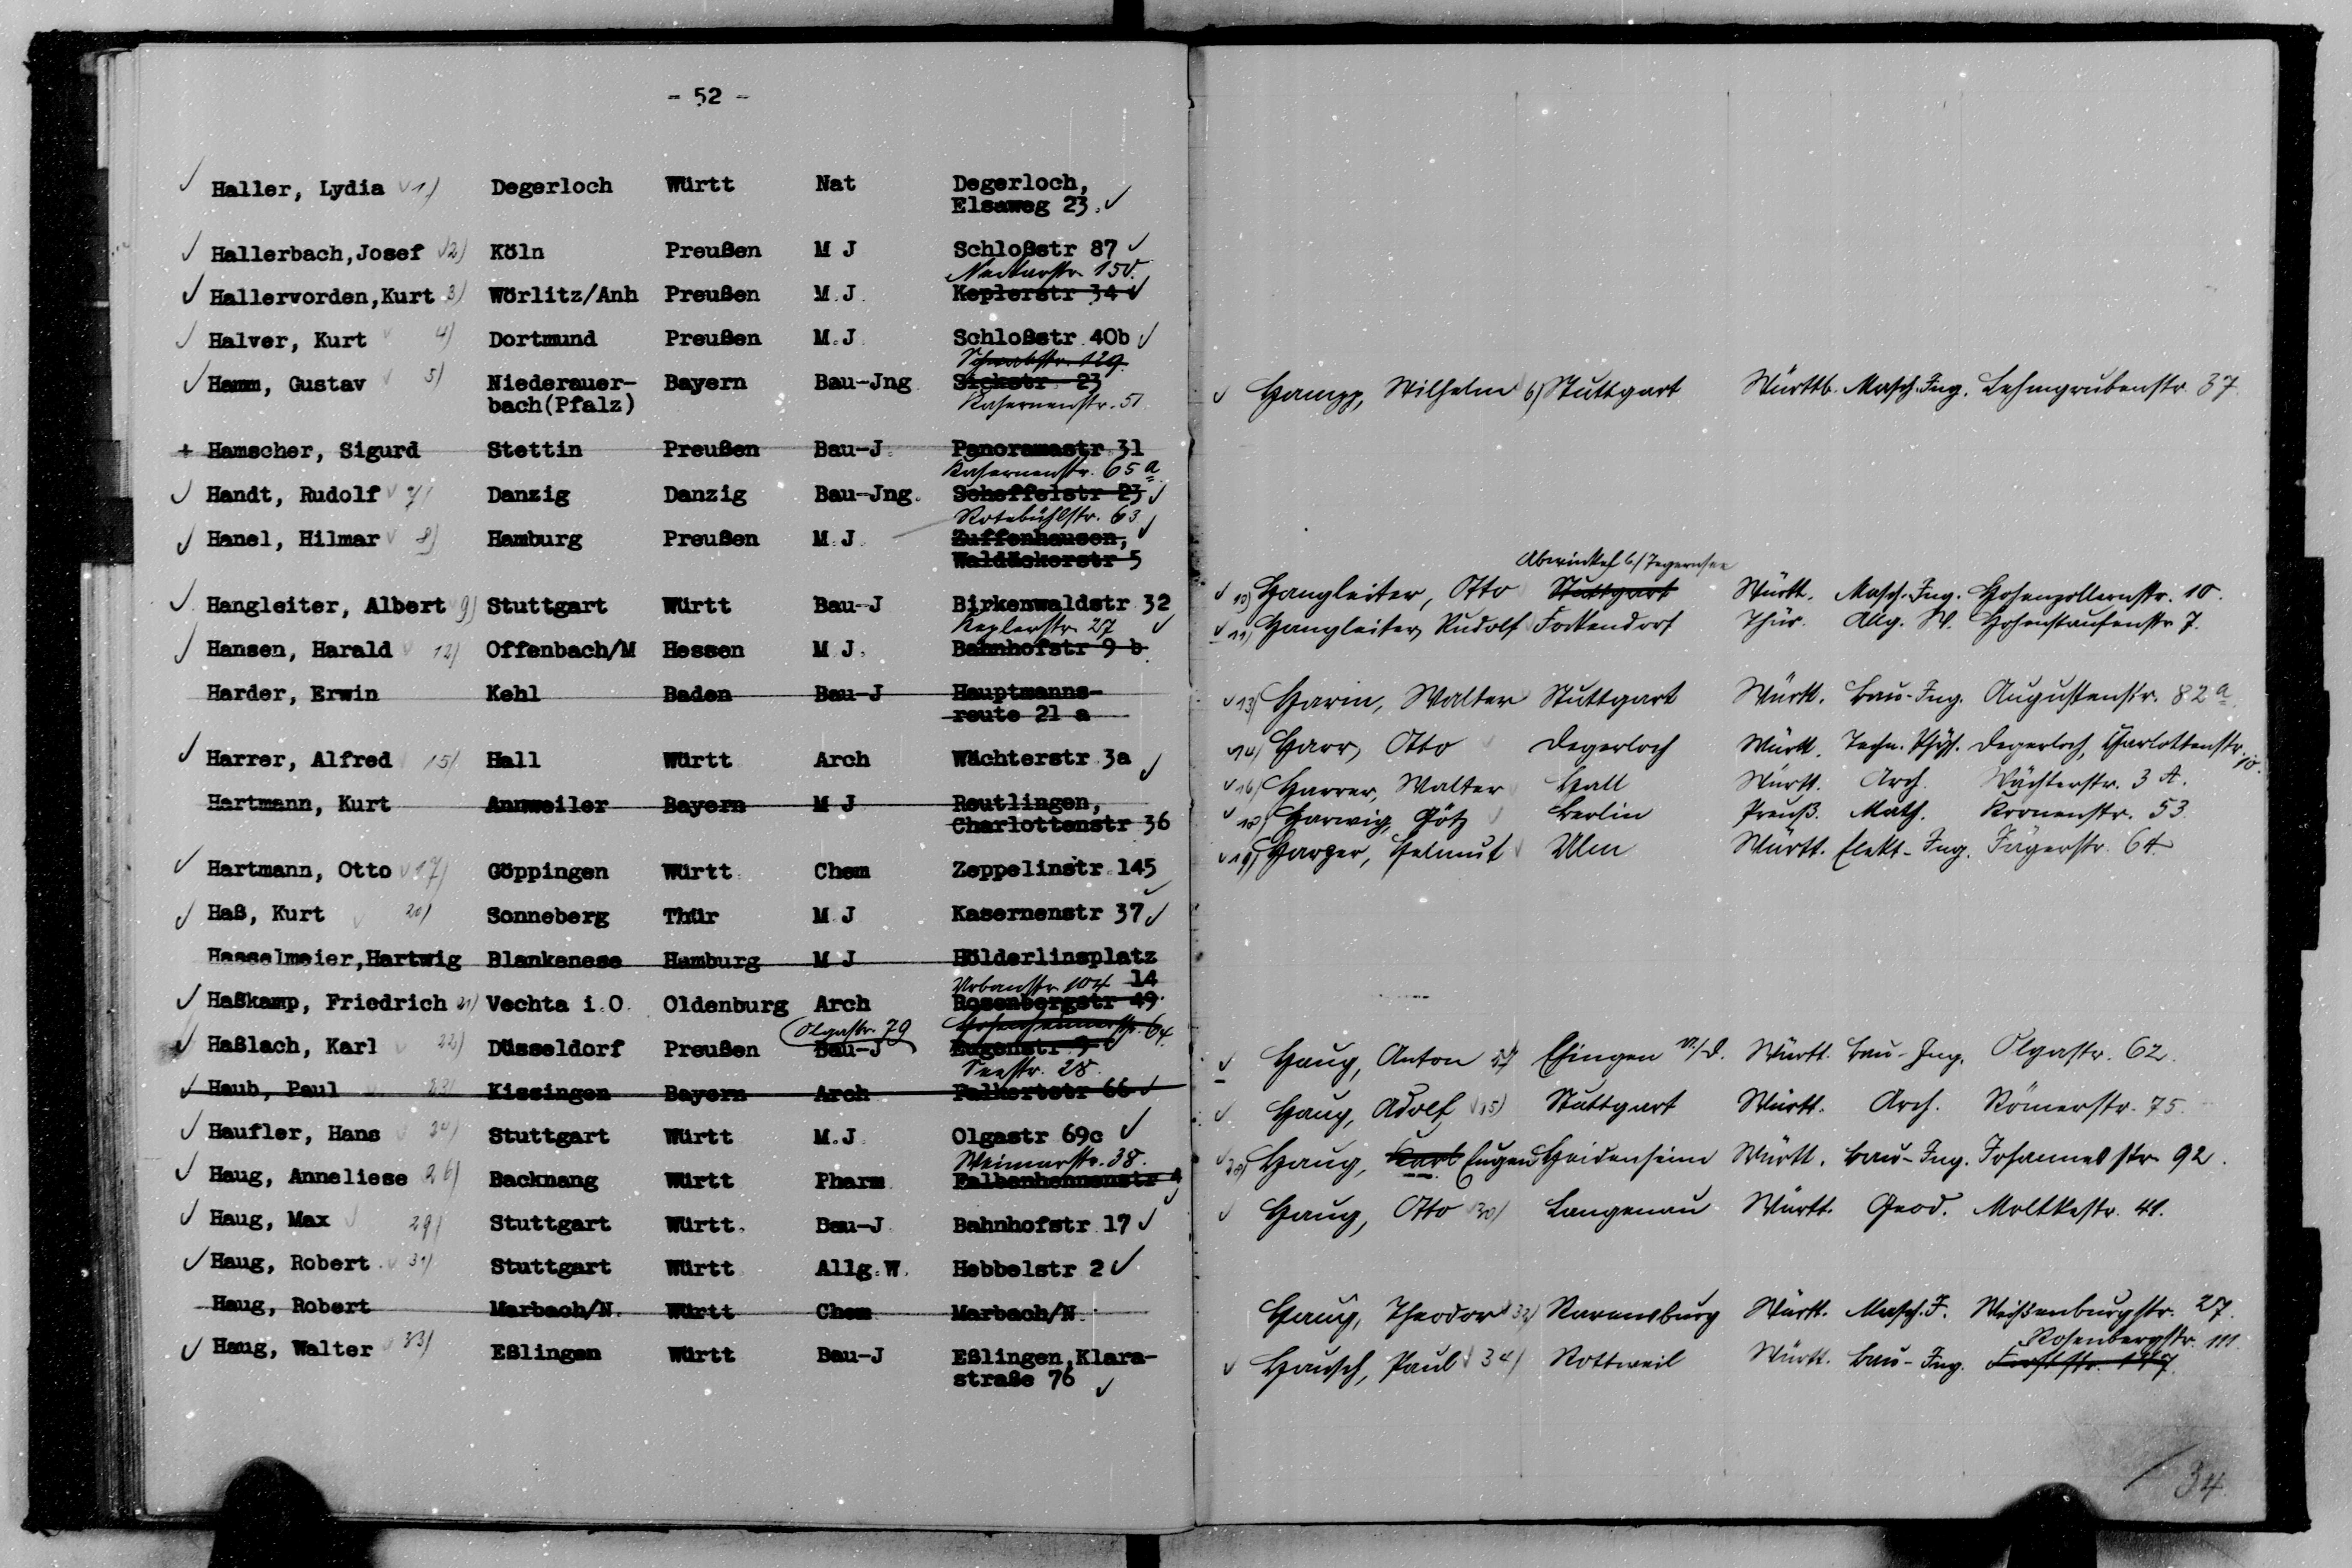 - 52 -
Haller, Lydia 1) Degerloch Württ Nat Degerloch,
Elsaweg 23.
Hallerbach,Josef 2) Köln Preußen M J Schloßstr 87
Neckarstr. 150.
Hallervorden,Kurt 3) Wörlitz/Anh Preußen M.J. Keplerstr 34
Halver, Kurt 4) Dortmund Preußen M.J. Schloßstr 40b
Schwabstr. 129.
Hamm, Gustav 5) Niederauer- Bayern Bau-Jng Sickstr 23
bach(Pfalz) Kasernenstr. 51
+ Hamscher, Sigurd Stettin Preußen Bau-J Panoramastr 31
Kasernenstr. 65 a
Handt, Rudolf 7) Danzig Danzig Bau-Jng. Scheffelstr 23
Rotebühlstr. 63
Hanel, Hilmar 8) Hamburg Preußen M.J. Zuffenhausen,
Waldäckerstr 5
Hangleiter, Albert 9) Stuttgart Württ Bau-J Birkenwaldstr 32
Keplerstr. 27
Hansen, Harald 12) Offenbach/M Hessen M J. Bahnhofstr 9 b
Harder, Erwin Kehl Baden Bau-J Hauptmanns-
reute 21 a
Harrer, Alfred 15) Hall Württ Arch Wächterstr 3a
Hartmann, Kurt Annweiler Bayern M J Reutlingen,
Charlottenstr 36
Hartmann, Otto 17) Göppingen Württ Chem Zeppelinstr 145
Haß, Kurt 20) Sonneberg Thür M J Kasernenstr 37
Hasselmeier,Hartwig Blankenese Hamburg M J Hölderlinsplatz
14
Urbanstr. 104
Haßkamp, Friedrich 21) Vechta i.O. Oldenburg Arch Rosenbergstr 49
Olgastr. 79 Hohenheimerstr. 64
Haßlach, Karl 22) Düsseldorf Preußen Bau-J Eugenstr 9
Seestr. 28.
Haub, Paul 23) Kissingen Bayern Arch Falkertstr 66
Haufler, Hans 24) Stuttgart Württ M.J. Olgastr 69c
Weimarstr. 38.
Haug, Anneliese 26) Backnang Württ Pharm Falbenhennenstr
Haug, Max 29) Stuttgart Württ. Bau-J Bahnhofstr 17
Haug, Robert 31) Stuttgart Württ Allg.W. Hebbelstr 2
Haug, Robert Marbach/N. Württ Chem Marbach/N.
Haug, Walter 33) Eßlingen Württ Bau-J Eßlingen,Klara-
straße 76
Hampp, Wilhelm 6) Stuttgart Württb. Masch.Ing. Lehmgrubenstr. 37
Abwinkel b/Tegernsee
10) Hangleiter, Otto Stuttgart Württ. Masch.-Ing. Hohenzollernstr. 10.
11) Hangleiter, Rudolf Fockendorf Thür. Allg. W. Hohenstaufenstr 7.
13) Harin, Walter Stuttgart Württ. Bau-Ing. Augustenstr. 82 a
14) Harr, Otto Degerloch Württ. Techn. Phys. Degerloch, Charlottenstr. 10.
16) Harrer, Walter Hall Württ. Arch. Wächterstr. 3 A.
18) Harwig, Götz Berlin Preuß. Math. Kronenstr. 53.
19) Harzer, Helmut Ulm Württ. Elekt-Ing. Jägerstr. 64
Haug, Anton Ehingen a/D. Württ. Bau-Ing. Olgastr. 62.
Haug, Adolf Stuttgart Württ. Arch. Römerstr. 75.
28) Haug, Karl Eugen Heidenheim Württ. Bau-Ing. Johannesstr. 92.
Haug, Otto 30) Langenau Württ. Geod. Moltkestr. 41.
Haug, Theodor 32) Ravensburg Württ. Masch.I. Weißenburgstr. 27.
Rosenbergstr. 111.
Hausch, Paul 34) Rottweil Württ. Bau-Ing. Forststr. 147.
34